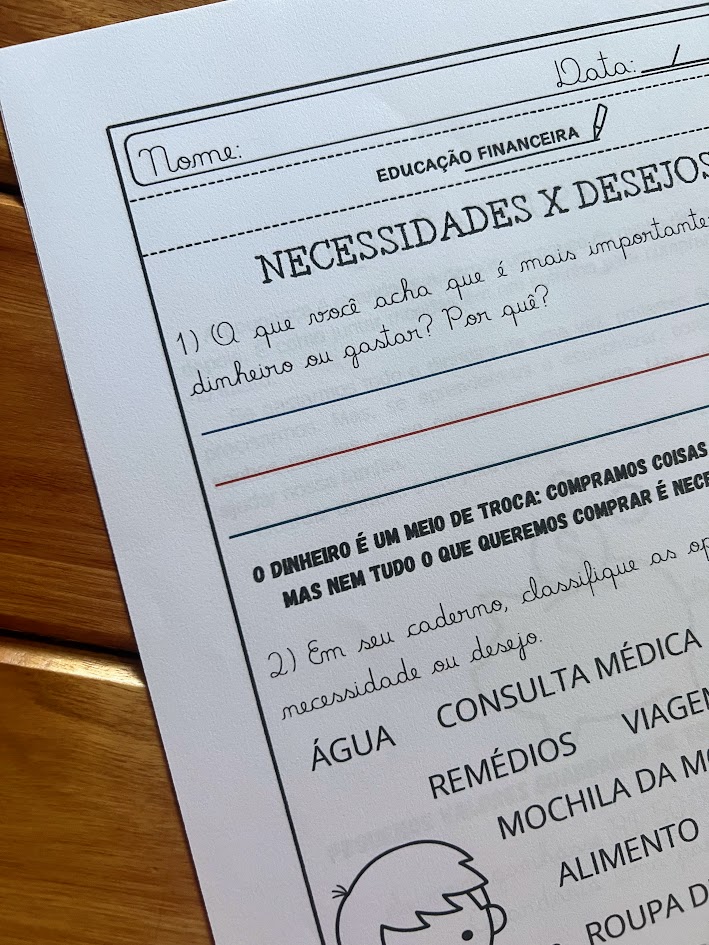 Data: /
Nome:
EDUCAÇÃO FINANCEIRA
NECESSIDADES X DESEJOS
1) O que você acha que é mais importante:
dinheiro ou gastar? Por quê?
O DINHEIRO É UM MEIO DE TROCA: COMPRAMOS COISAS
MAS NEM TUDO O QUE QUEREMOS COMPRAR É
2) Em seu caderno, classifique as
necessidade ou desejo.
ÁGUA CONSULTA MÉDICA
REMÉDIOS
MOCHILA DA
ALIMENTO
ROUPA